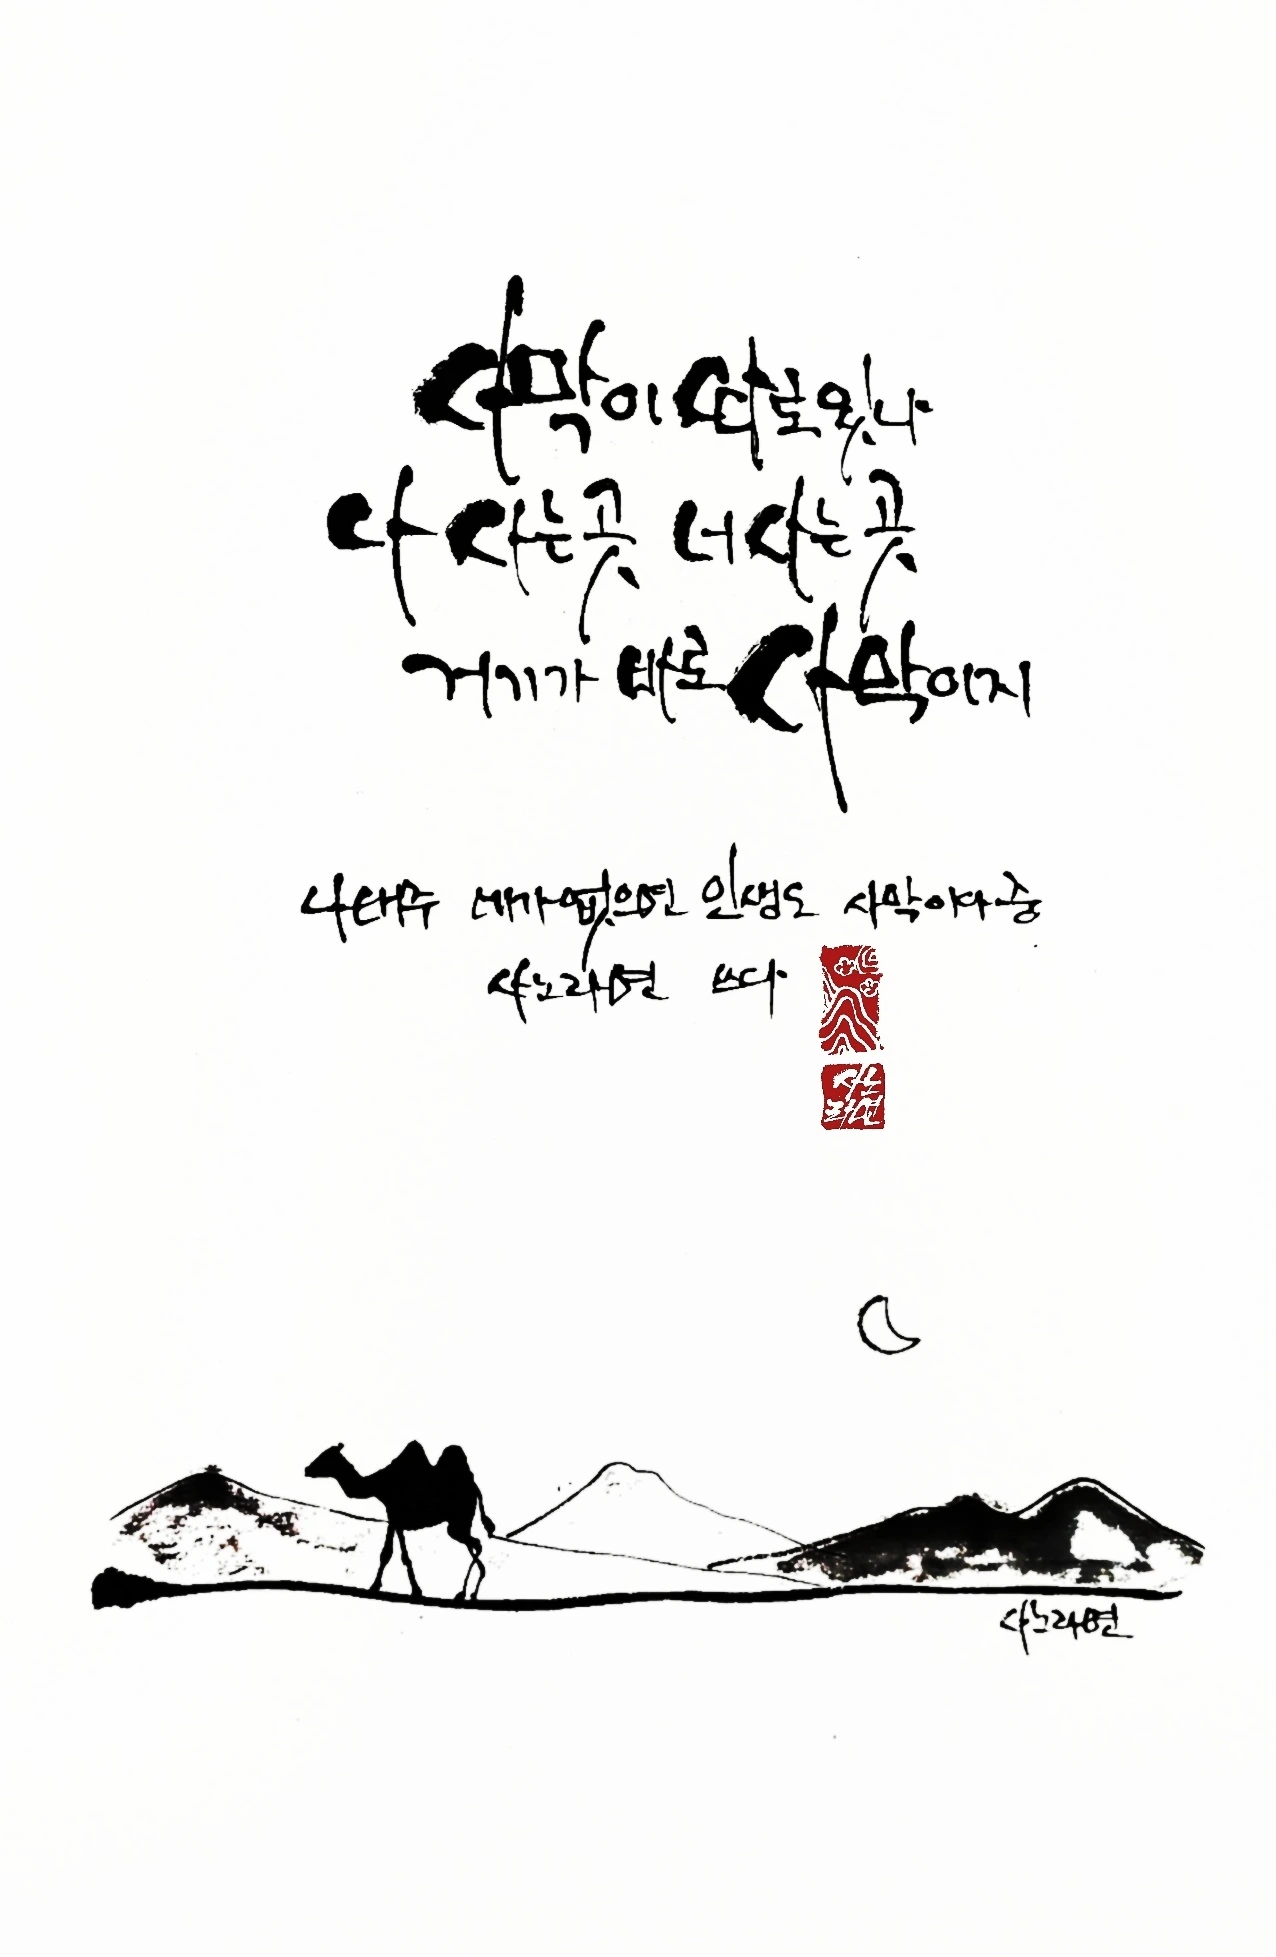 사막이 따로 있나
나 사는 곳 너 사는 곳
거기가 바로 사막이지
나태주 네가 없으면 인생도 사막이다 중
샤노라면 쓰다
샤노
라면
샤노라면